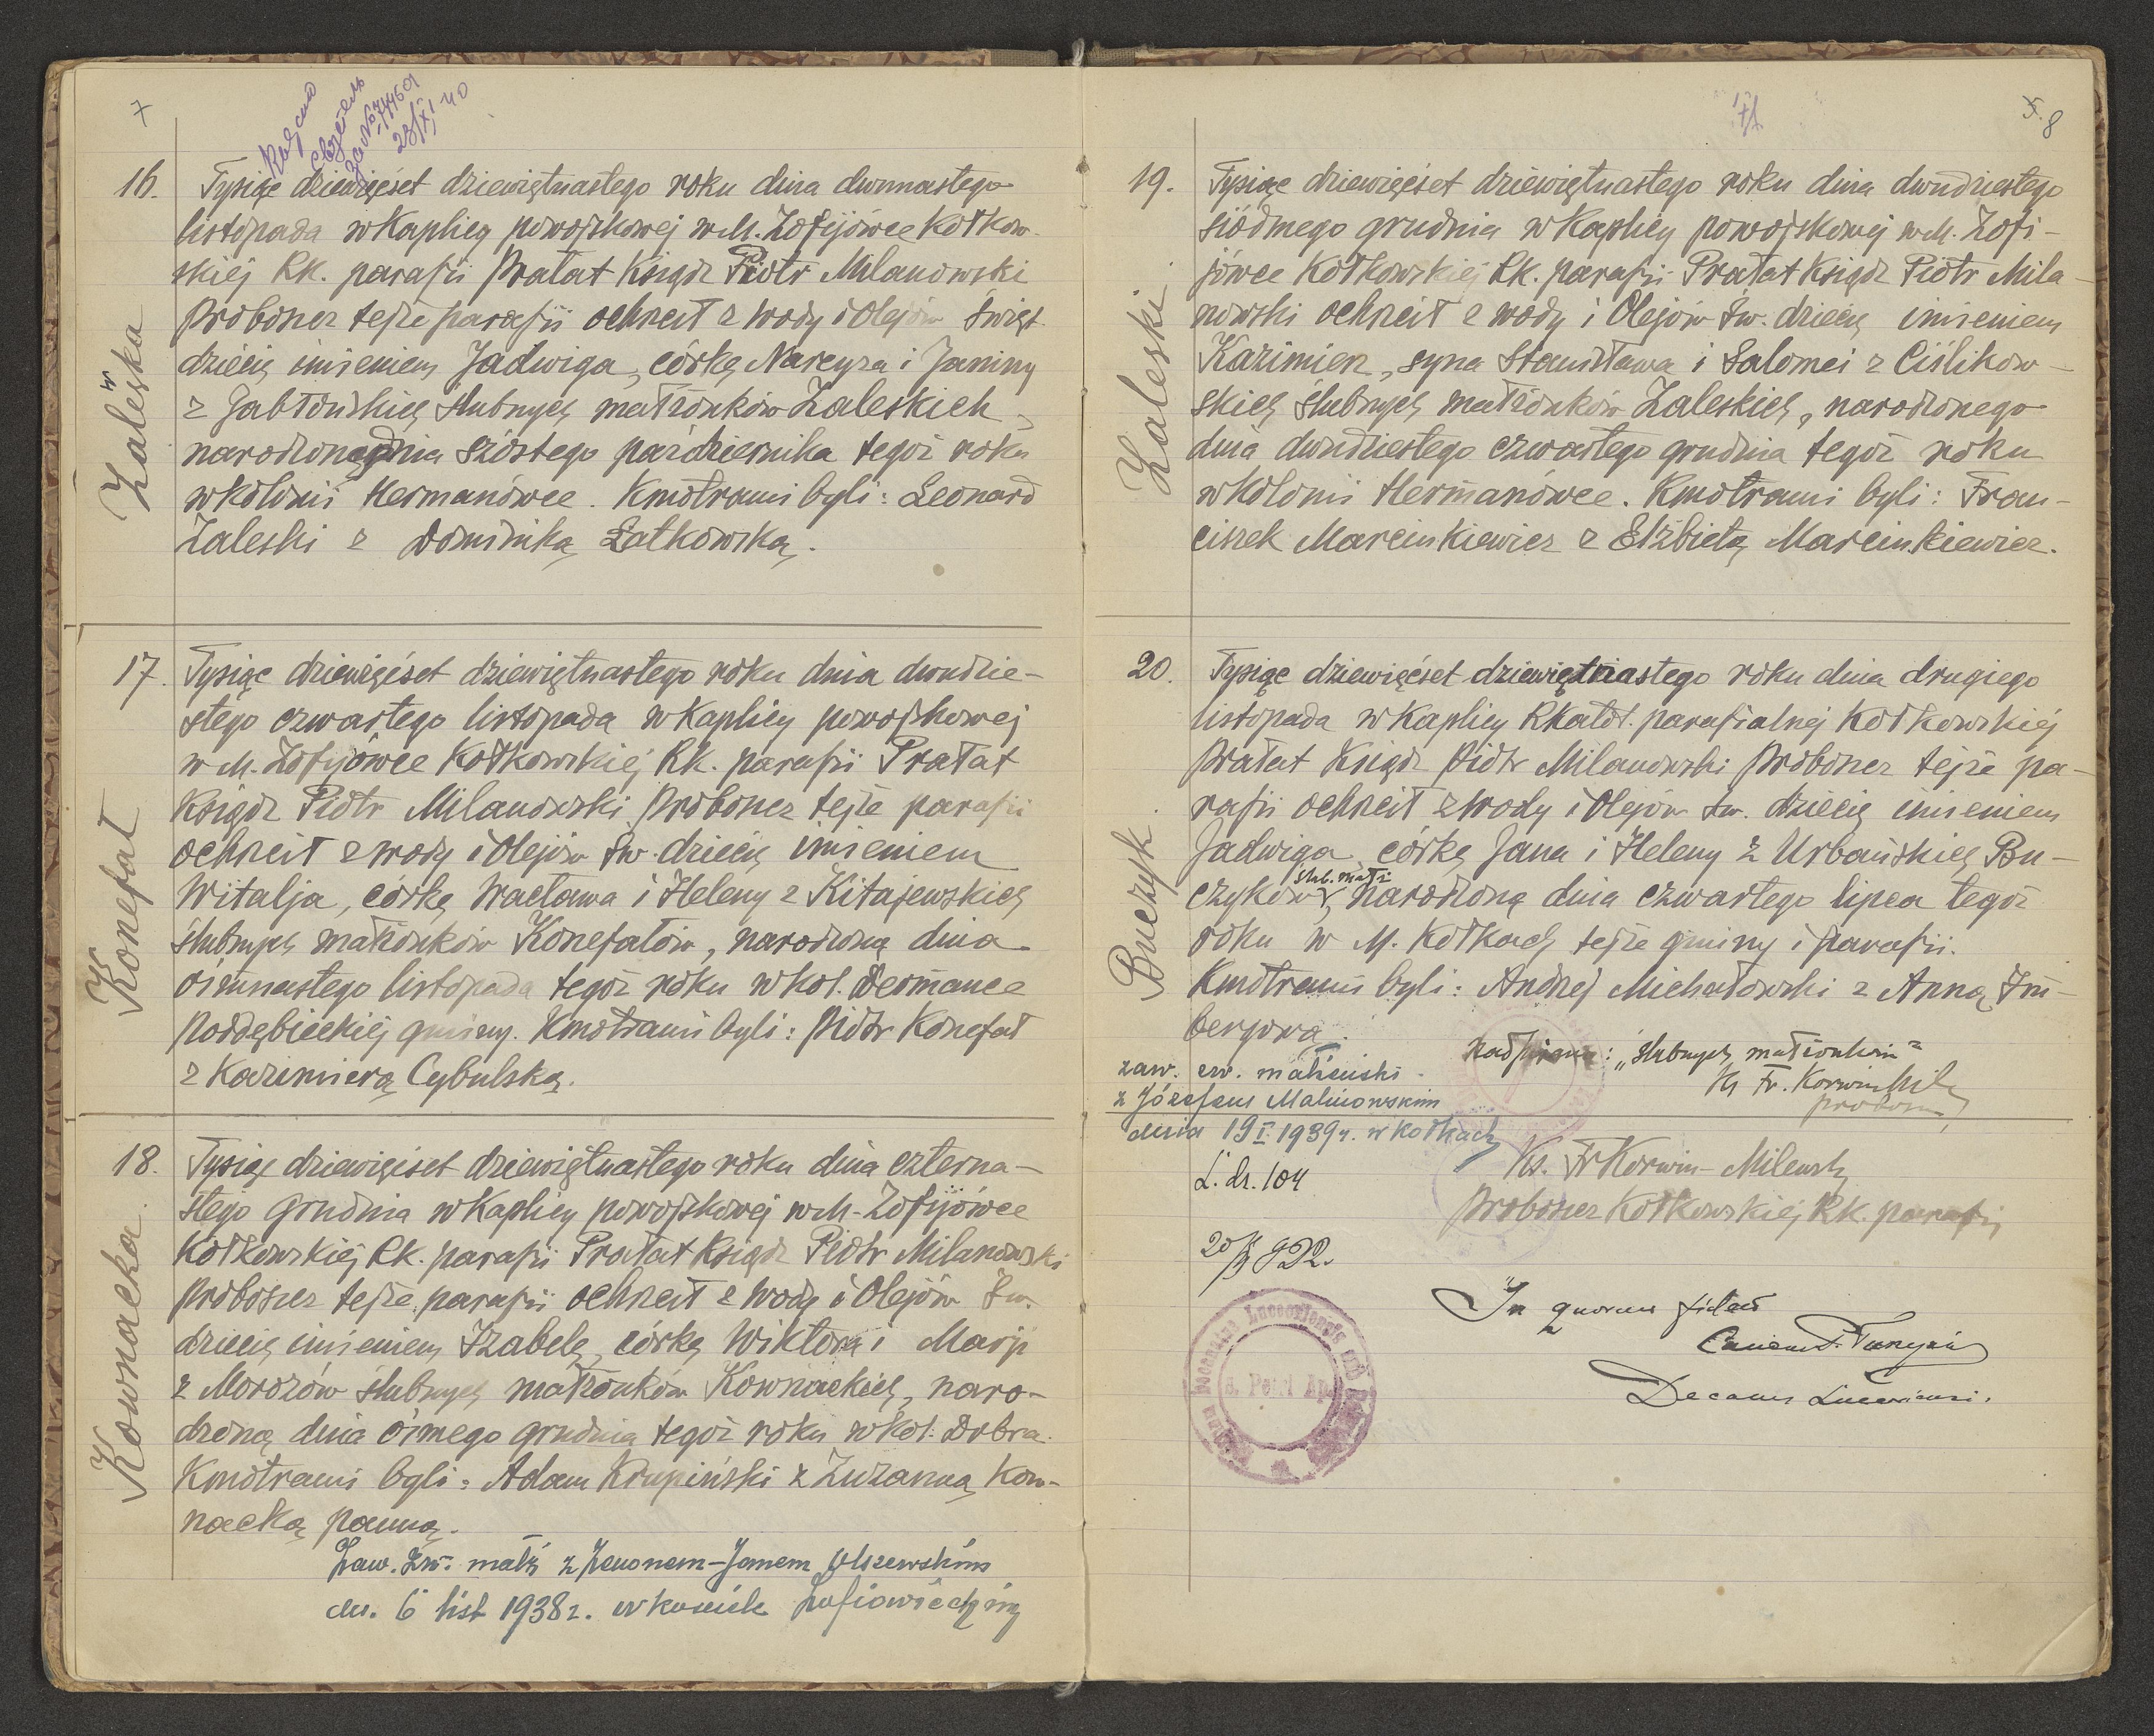 7
16.
Zaleska
Tysiąc dziewięćset dziewiętnastego roku dnia dwunastego
listopada w Kaplicy powojskowej w M. Zofijówce Kołkow-
skiej Rk. parafii Prałat Ksiądz Piotr Milanowski
Proboszcz tejże parafii ochrcił z wody i Olejów Święt.
dziécię imieniem Jadwiga, córkę Narcyza i Janiny
z Jabłońskich ślubnych małżonków Zaleskich,
narodzoną dnia szóstego października tegoż roku
w kolonii Hermanówce. Kmotrami byli: Leonard
Zaleski z Dominiką Łatkowską.
17.
Konefał
Tysiąc dziewięćset dziewiętnastego roku dnia dwudzie-
stego czwartego listopada w Kaplicy powojskowej
w M. Zofijówce Kołkowskiej Rk. parafii Prałat
Ksiądz Piotr Milanowski Proboszcz tejże parafii
ochrcił z wody i Olejów św. dziécię imieniem
Witalja, córkę Wacława i Heleny z Kitajewskich
ślubnych małżonków Konefałów, narodzoną dnia
ośmnastego listopada tegoż roku w kol. Dermance
Poddębieckiej gminy. Kmotrami byli: Piotr Konefał
z Kazimierą Cybulską.
18.
Kownacka.
Tysiąc dziewięćset dziewiętnastego roku dnia czterna-
stego Grudnia w Kaplicy powojskowej w M. Zofijówce
Kołkowskiej Rk. parafii Prałat Ksiądz Piotr Milanowski
Proboszcz tejże parafii ochrcił z wody i Olejów Św.
dziécię imieniem Izabelę, córkę Wiktora i Marji
z Morozów ślubnych małżonków Kownackich, naro-
dzoną dnia ósmego grudnia tegoż roku w kol. Dobra.
Kmotrami byli: Adam Krupiński z Zuzanną Kow-
nacką panną.
Zaw. Zw. małż z Zenonem-Janem Olszewskim
dn. 6 list 1938 r. w kościele
8
19.
Zaleski
Tysiąc dziewięćset dziewiętnastego roku dnia dwudziestego
siódmego grudnia w Kaplicy powojskowej w M. Zofi-
jówce Kołkowskiej Rk. parafii Prałat Ksiądz Piotr Mila-
nowski ochrcił z wody i Olejów św. dziécię imieniem
Kazimierz, syna Stanisława i Salomei z Ciślikow-
skich ślubnych małżonków Zaleskich, narodzonego
dnia dwudziestego czwartego grudnia tegoż roku
w kolonii Hermanówce. Kmotrami byli: Fran-
ciszek Marcinkiewicz z Elżbietą Marcinkiewicz.
20.
Buczyk.
Tysiąc dziewięćset dziewiętnastego roku dnia drugiego
listopada w Kaplicy Rkatol. parafialnej Kołkowskiej
Prałat Ksiądz Piotr Milanowski Proboszcz tejże pa-
rafii ochrcił z wody i Olejów św. dziécię imieniem
Jadwiga, córkę Jana i Heleny z Urbańskich Bu-
ślub. małż
czyków, narodzoną dnia czwartego lipca tegoż
roku w M. Kołkach tejże gminy i parafii.
Kmotrami byli: Andrzej Michałowski z Anną Im-
bergową.
Nadpisano: "ślubnych małżonków"
Ks Fr. Korwin Mil
probosz
zaw. zw. małżeński
z Józefem Malinowskim
dnia 19 I 1939 r. w Kołkach
L. dz. 104
Ks. Fr Korwin-Milewski
Proboszcz Kołkowskiej Rk. parafii
In quorum fidem
Decanus Luceoriensis.